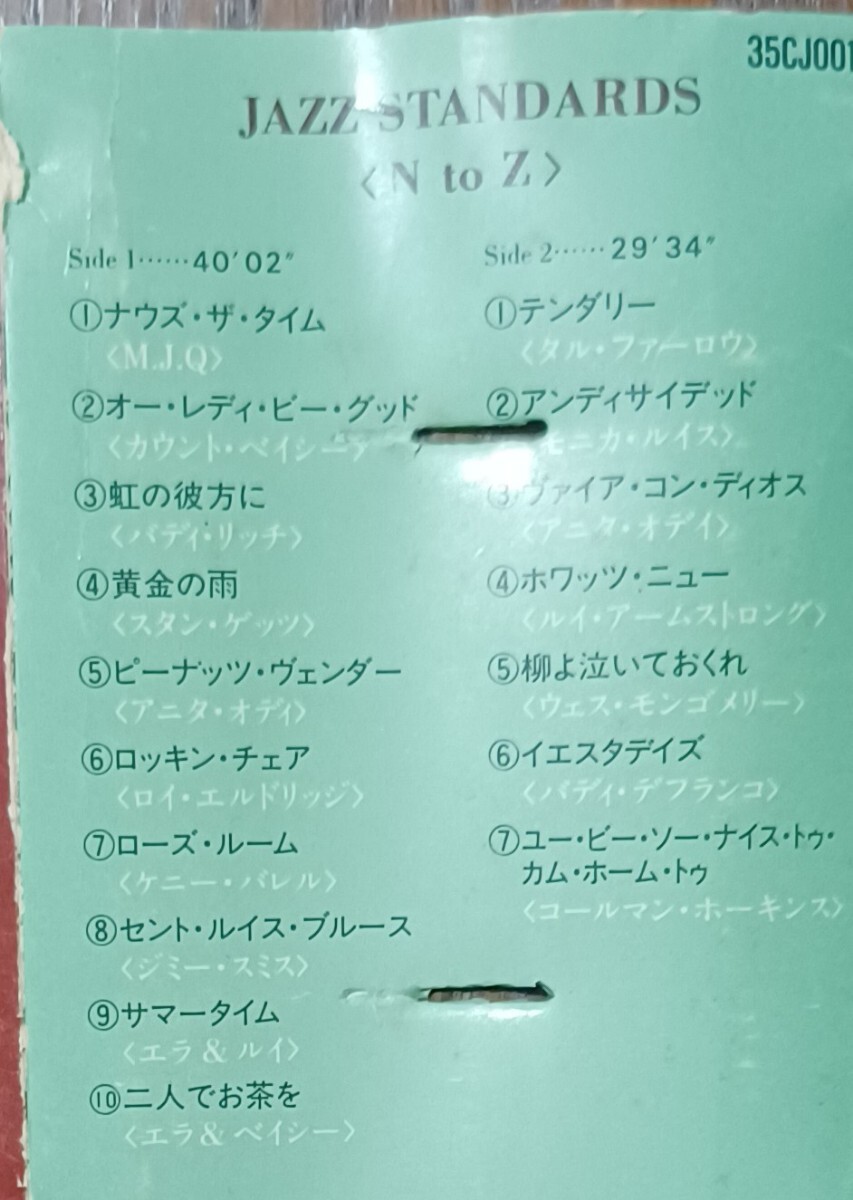 35CJ001
JAZZ STANDARDS
〈N to Z〉
Side 1……40′02″
①ナウズ・ザ・タイム
〈M.J.Q〉
②オー・レディ・ビー・グッド
〈カウント・ベイシー
③虹の彼方に
〈バディ・リッチ〉
④黄金の雨
〈スタン・ゲッツ〉
⑤ピーナッツ・ヴェンダー
〈アニタ・オデイ〉
⑥ロッキン・チェア
〈ロイ・エルドリッジ〉
⑦ローズ・ルーム
〈ケニー・バレル〉
⑧セント・ルイス・ブルース
〈ジミー・スミス〉
⑨サマータイム
〈エラ&ルイ〉
⑩二人でお茶を
〈エラ&ベイシー〉
Side 2……29′34″
①テンダリー
〈タル・ファーロウ〉
②アンディサイデッド
モニカ・ルイス〉
③ヴァイア・コン・ディオス
〈アニタ・オデイ〉
④ホワッツ・ニュー
〈ルイ・アームストロング〉
⑤柳よ泣いておくれ
〈ウェス・モンゴメリー〉
⑥イエスタデイズ
〈バディ・デフランコ〉
⑦ユー・ビー・ソー・ナイス・トゥ・
カム・ホーム・トゥ
〈コールマン・ホーキンス〉